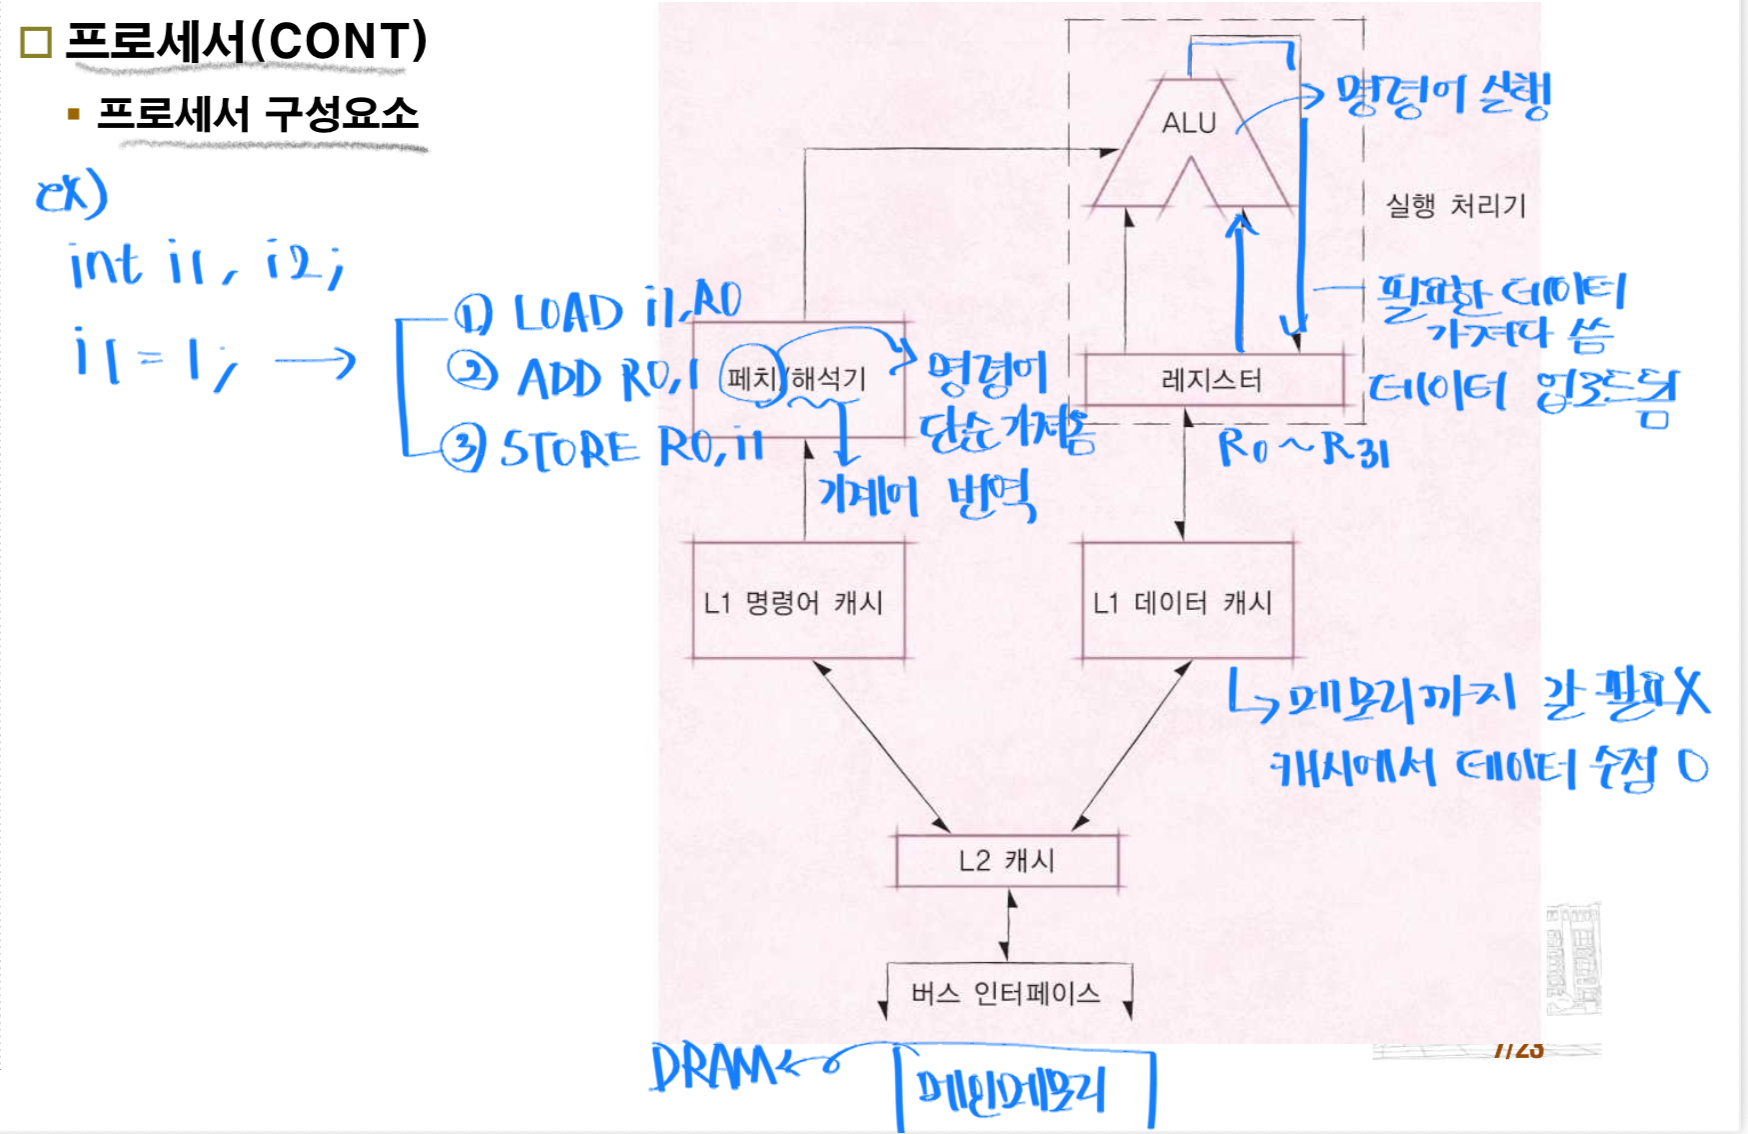 프로세서(CONT)
프로세서 구성요소
ex)
int i1, i2;
i1 = 1; →
① LOAD i1, R0
② ADD R0, 1
③ STORE R0, i1
ALU
명령어 실행
실행 처리기
필요한 데이터
가져다 씀
데이터 업로드됨
페치/해석기
명령어
단순 가져옴
기계어 번역
레지스터
R0 ~ R31
L1 명령어 캐시
L1 데이터 캐시
메모리까지 갈 필요X
캐시에서 데이터 수정 O
L2 캐시
버스 인터페이스
DRAM
메인메모리
7/23